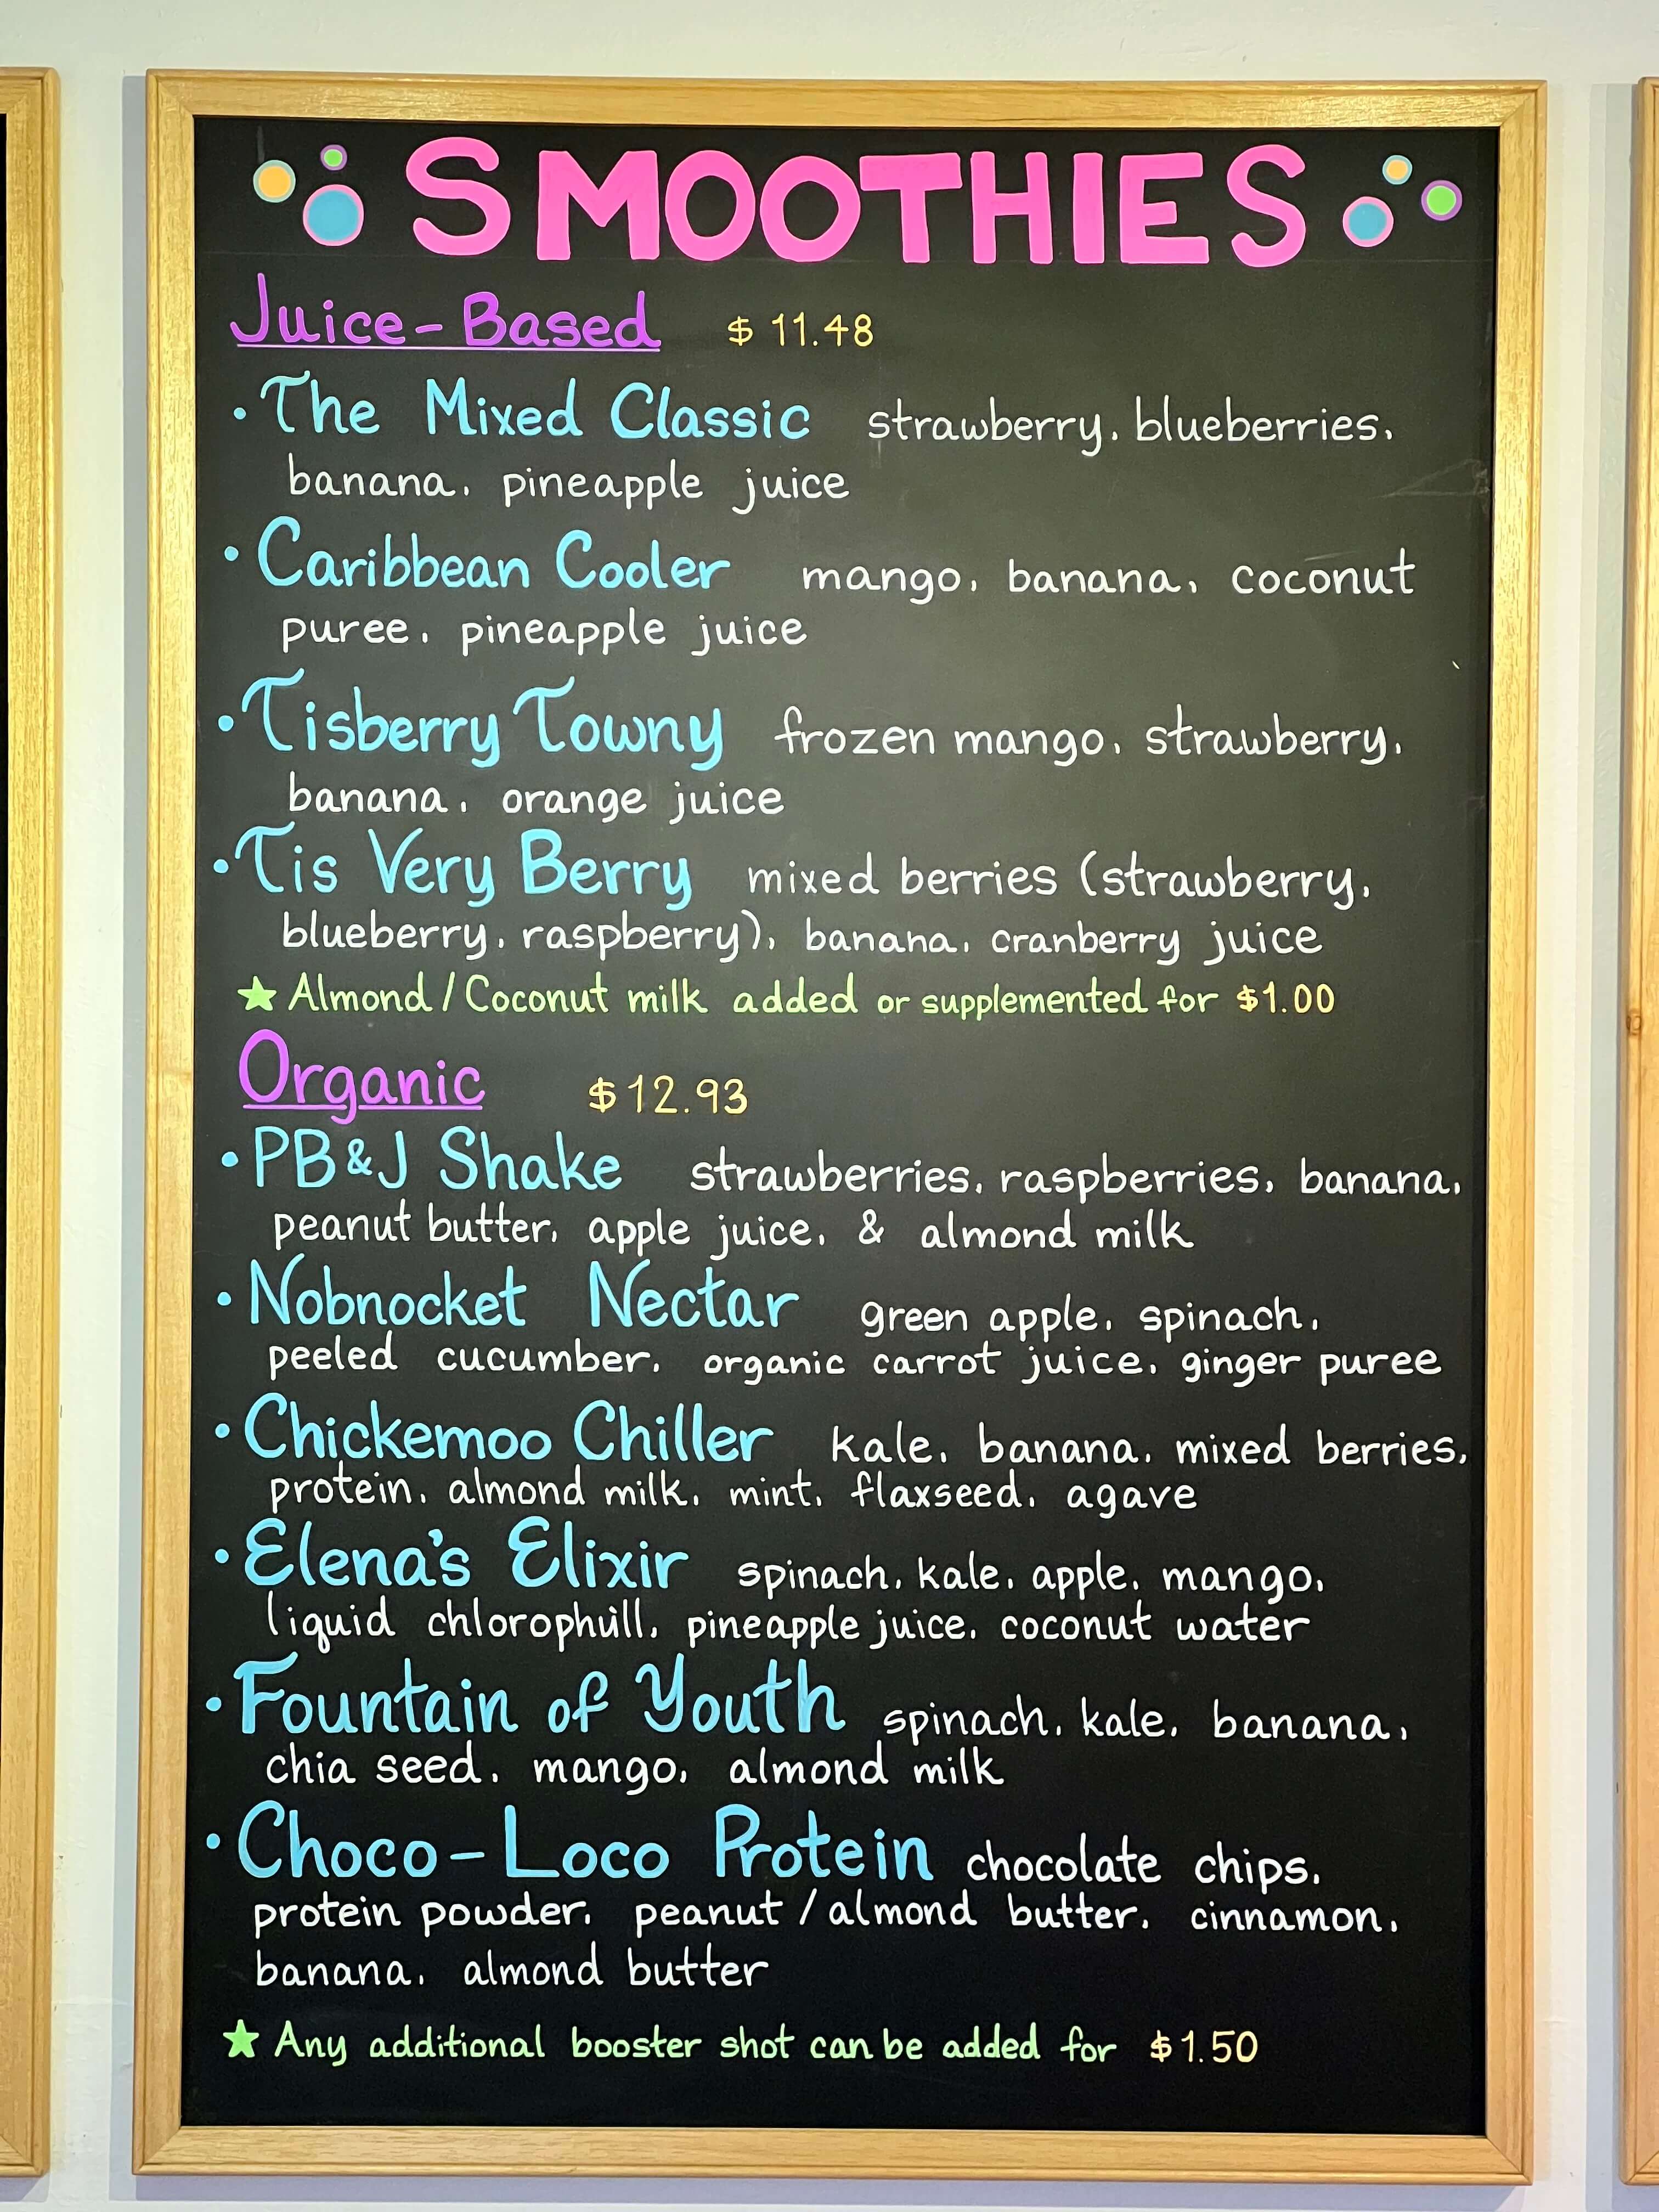 SMOOTHIES
Juice-Based $ 11.48
• The Mixed Classic strawberry, blueberries,
banana, pineapple juice
• Caribbean Cooler mango, banana, coconut
puree, pineapple juice
• Tisberry Towny frozen mango, strawberry,
banana, orange juice
• Tis Very Berry mixed berries (strawberry,
blueberry, raspberry), banana, cranberry juice
★ Almond / Coconut milk added or supplemented for $1.00
Organic $12.93
• PB&J Shake strawberries, raspberries, banana,
peanut butter, apple juice, & almond milk
• Nobnocket Nectar green apple, spinach,
peeled cucumber, organic carrot juice, ginger puree
• Chickemoo Chiller kale, banana, mixed berries,
protein, almond milk, mint, flaxseed, agave
• Elena's Elixir spinach, kale, apple, mango,
liquid chlorophull, pineapple juice, coconut water
• Fountain of Youth spinach, kale, banana,
chia seed, mango, almond milk
• Choco-Loco Protein chocolate chips,
protein powder, peanut / almond butter, cinnamon,
banana, almond butter
★ Any additional booster shot can be added for $1.50